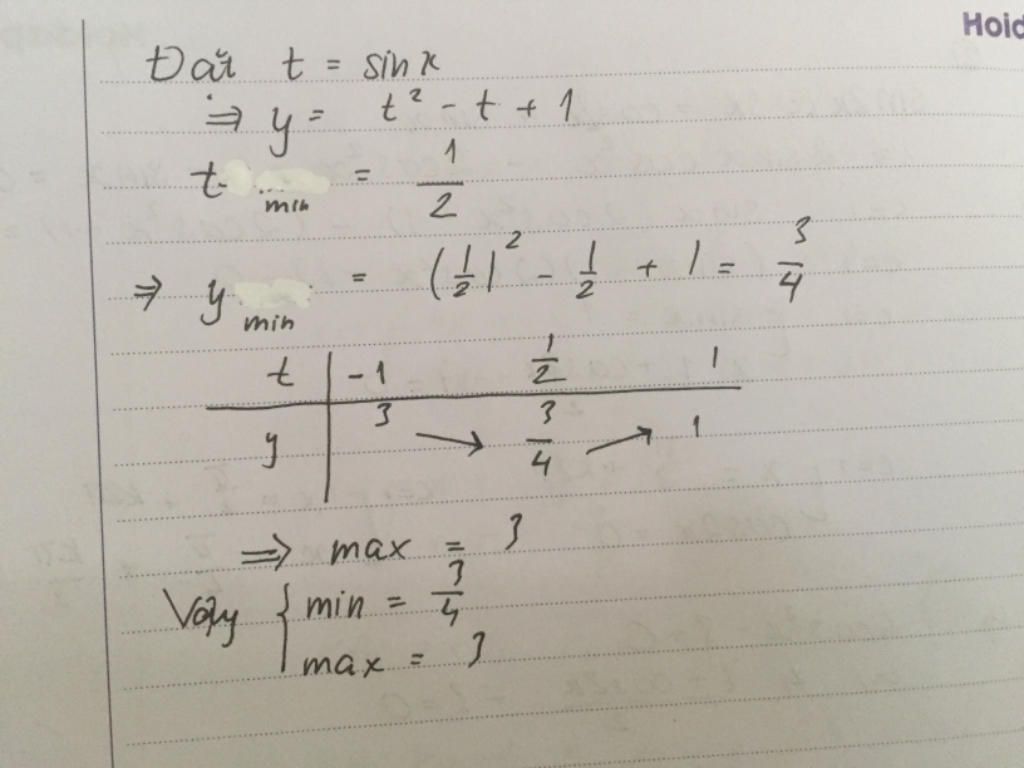 Hoid
Đặt t = sin x
⇒ y = t² - t + 1
t min = 1/2
⇒ y min = (1/2)² - 1/2 + 1 = 3/4
t | -1 1/2 1
y | 3 ↘ 3/4 ↗ 1
⇒ max = 3
Vậy { min = 3/4
max = 3